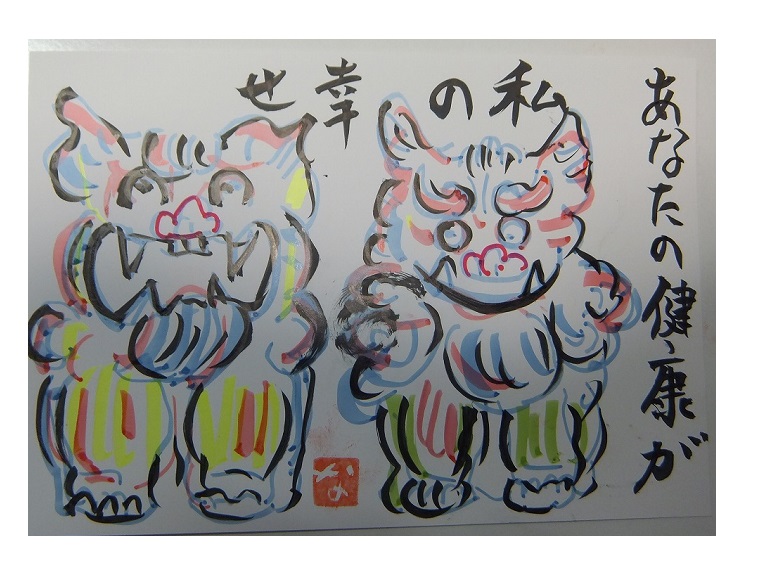 あなたの健康が
私の
幸せ
な